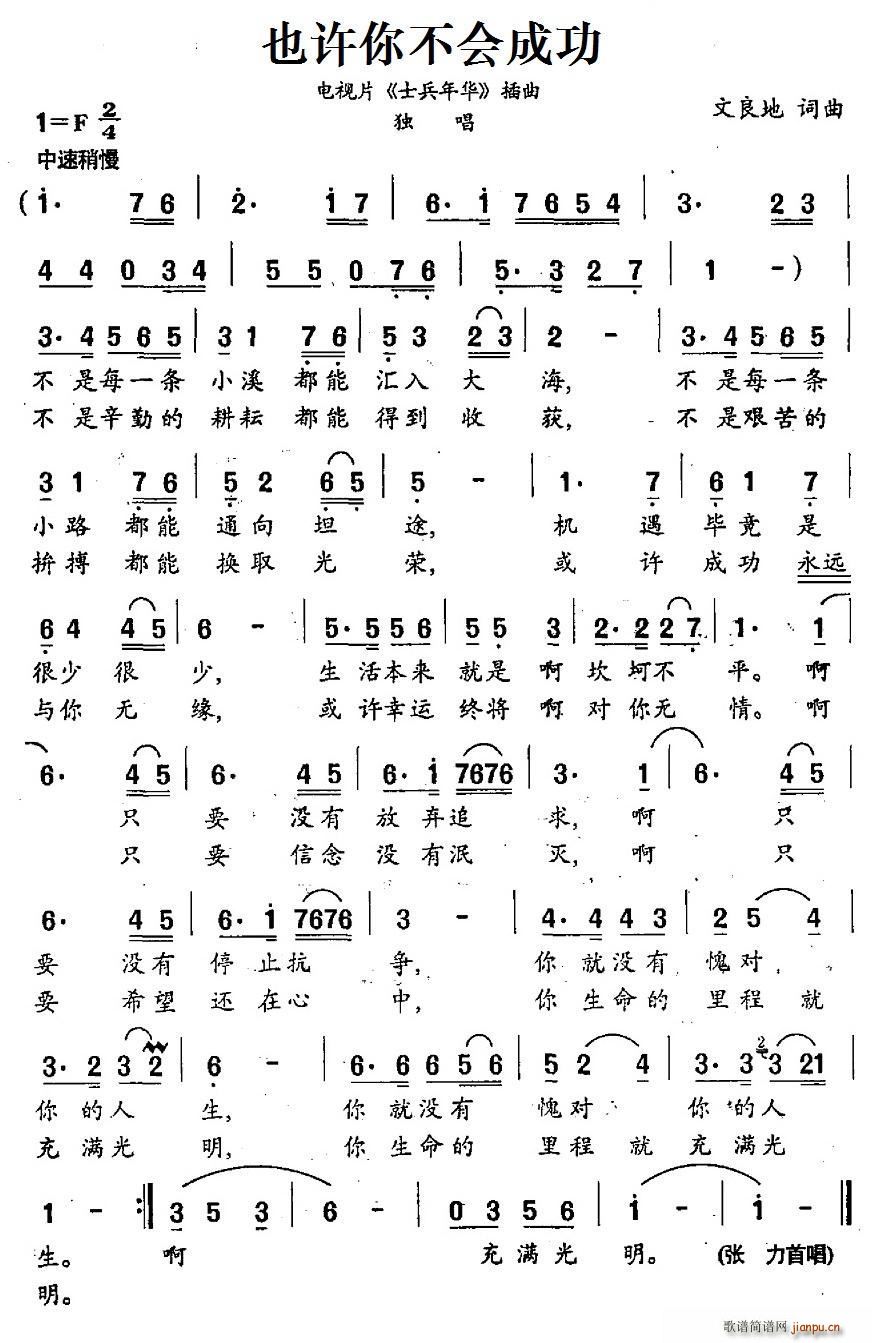 也许你不会成功
电视片《士兵年华》插曲
独 唱
文良地 词曲
1=F 2/4
中速稍慢
(i· 76 | 2· i7 | 6·i 7654 | 3· 23 |
44 034 | 55 076 | 5·3 27 | 1 -) |
3·4 565 | 31 76 | 53 23 | 2 - | 3·4 565 |
不是每一条 小溪 都能 汇入 大 海, 不是每一条
不是辛勤的 耕耘 都能 得到 收 获, 不是艰苦的
31 76 | 52 65 | 5 - | 1· 7 | 61 7 |
小路 都能 通向 坦 途, 机 遇 毕竟 是
拚搏 都能 换取 光 荣, 或 许 成功 永远
64 45 | 6 - | 5·5 56 | 55 3 | 2·2 27 | 1· 1 |
很少 很 少, 生活本来 就是 啊 坎坷不 平。 啊
与你 无 缘, 或许幸运 终将 啊 对你无 情。 啊
6· 45 | 6· 45 | 6·i 7676 | 3· 1 | 6· 45 |
只 要 没有 放弃追 求, 啊 只
只 要 信念 没有泯 灭, 啊 只
6· 45 | 6·i 7676 | 3 - | 4·4 43 | 25 4 |
要 没有 停止抗 争, 你就没有 愧对
要 希望 还在心 中, 你生命的 里程 就
3·2 32 | 6 - | 6·6 656 | 52 4 | 3·3 2 321 |
你的人 生, 你就没有 愧对 你的人
充满光 明, 你生命的 里程 就 充满光
1 - :| 35 3 | 6 - | 03 56 | i - | i - ||
生。 啊 充满光 明。 (张 力首唱)
明。
歌谱简谱网
jianpu.cn